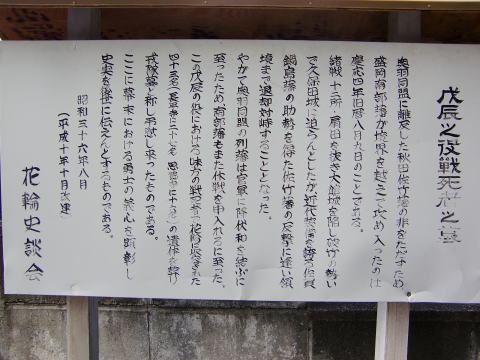 戊辰之役戦死者之墓
奥羽同盟に離反した秋田佐竹藩の非をたゞすため、
盛岡南部藩が境界を越えて攻め入ったのは
慶応四年旧暦八月九日のことである。
緒戦十二所、扇田を抜き大館城を陥し破竹の勢い
で久保田城に迫らんとしたが、近代装備を誇る佐賀
鍋島藩の助勢を得た佐竹藩の反撃に遭い領
境まで退却対峙することとなった。
やがて奥羽同盟の列藩は官軍に降伏和を結ぶに
至ったため、南部藩もまた休戦を申入れるに至った。
この戊辰の役における味方の戦死者で花輪に
四十三名の遺体を葬り
戎隊墓と称し弔い来ったものである。
ここに幕末における勇士の義心を顕彰し
史実を後世に伝えんとするものである。
昭和三十六年八月
(平成十年十月改建)
花輪史談会